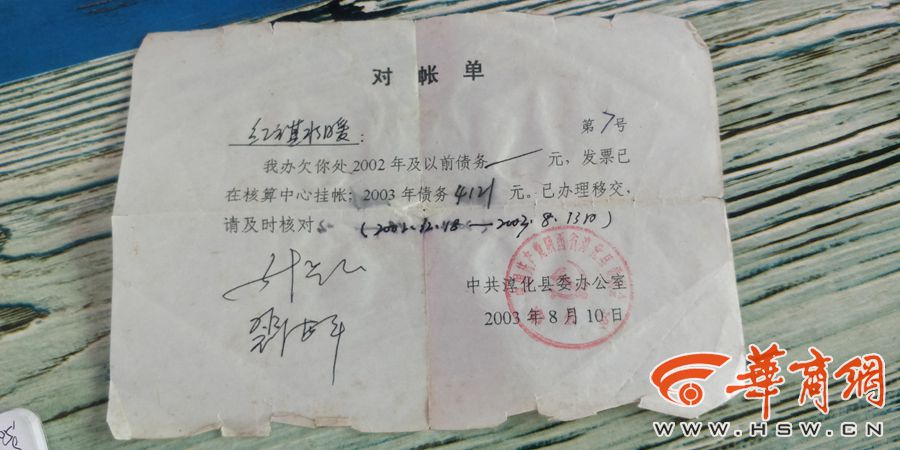 对帐单
红旗水暖:
第7号
我办欠你处2002年及以前债务 — 元,发票已
在核算中心挂帐;2003年债务4121元。已办理移交,
请及时核对
中共淳化县委办公室
2003年8月10日
華商網
www.HSW.CN